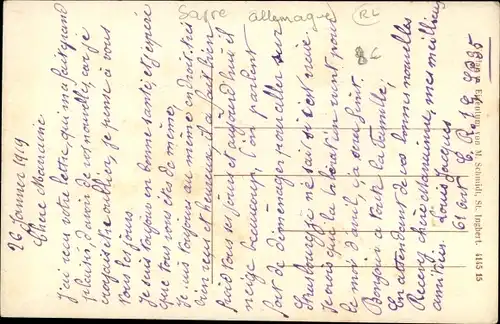 Sarre allemagne RL
26 Janvier 1919
Chère Marraine
J'ai reçu votre lettre, qui m'a fait grand
plaisir, d'avoir de vos nouvelles, car je
croyais être oublier, je pense à vous
tous les jours.
Je suis toujours en bonne santé, et espère
que tous vous êtes de même,
Je suis toujours au même endroit, très
bien reçu et heureux, il a fait bien
froid tous ces jours et aujourd'hui il
neige beaucoup, l'on parlent
fort de déménager, pour aller sur
Strasbourg, je serai
Je crois que la libération vont pour
le mois d'avril, j'ai
Bonjour à toute la famille,
En attendant de vos bonnes nouvelles
Recevez chère marraine, mes meilleurs
amitiés. Louis Jacques
61 art
Eigentum von M. Schmidt, St. Ingbert. 4145 15